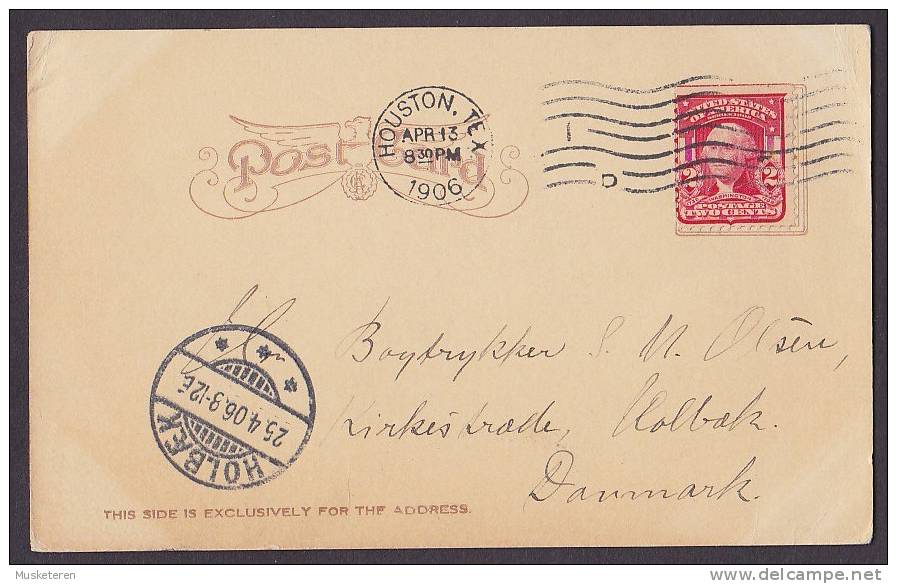 Post Card
HOUSTON, TEX
APR 13
8 30 PM
1906
D
UNITED STATES
OF AMERICA
2 2
WASHINGTON
POSTAGE
TWO CENTS
Hr
Bogtrykker S. N. Olsen,
Kirkestræde, Holbæk.
Danmark.
HOLBÆK
25.4.06.8-12F
THIS SIDE IS EXCLUSIVELY FOR THE ADDRESS.
Musketeren
delcampe.net